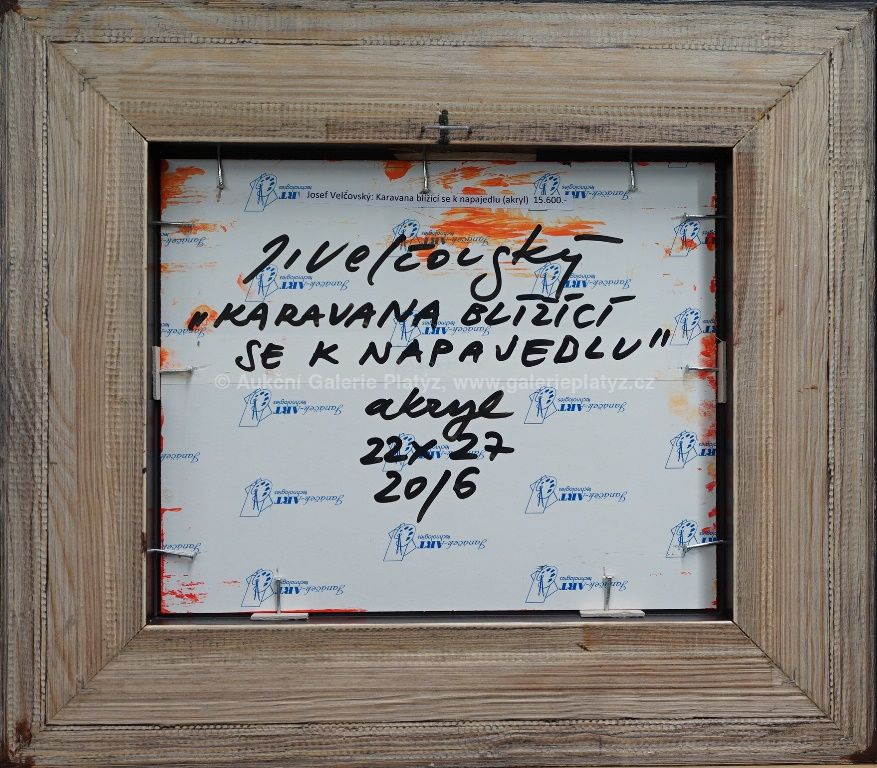 Josef Velčovský: Karavana blížící se k napajedlu (akryl) 15.600.-
JIVelčovský
„KARAVANA BLÍŽÍCÍ
SE K NAPAJEDLU"
© Aukční Galerie Platýz, www.galerieplatyz.cz
akryl
22x27
2016
Janáček-ART
technologies